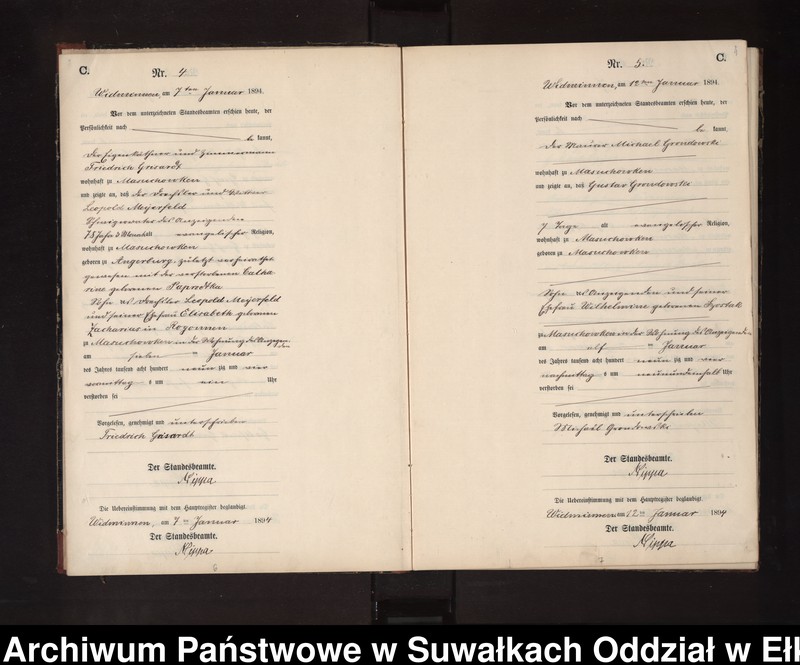 C.
Nr. 4
Widminnen, am 7ten Januar 1894.
Vor dem unterzeichneten Standesbeamten erschien heute, der
Persönlichkeit nach
be kannt,
der Eigenkäthner und Zimmermann
Friedrich
wohnhaft zu Masuchowken
und zeigte an, daß der Ortsarme und
Leopold Meyerfeld
Schwiegervater des Anzeigenden
evangelischer Religion,
wohnhaft zu Masuchowken
geboren zu Angerburg, zuletzt verheirathet
gewesen mit der verstorbenen Catha
rine geborenen Paprotka
Sohn des Leopold Meyerfeld
und seiner Ehefrau Elisabeth geborenen
Zacharias in
zu Masuchowken in der Wohnung des Anzeigen
den
am sieben ten Januar
des Jahres tausend acht hundert neun zig und vier
vormittag s um ein Uhr
verstorben sei
Vorgelesen, genehmigt und unterschrieben
Friedrich
Der Standesbeamte.
Nippa
Die Uebereinstimmung mit dem Hauptregister beglaubigt
Widminnen, am 7ten Januar 1894
Der Standesbeamte.
Nippa
C.
Nr. 5.
Widminnen, am 12ten Januar 1894.
Vor dem unterzeichneten Standesbeamten erschien heute, der
Persönlichkeit nach
be kannt,
der Maurer Michael Grondowski
wohnhaft zu Masuchowken
und zeigte an, daß Gustav Grondowski
7 Tage alt evangelischer Religion,
wohnhaft zu Masuchowken
geboren zu Masuchowken
Sohn des Anzeigenden und seiner
Ehefrau Wilhelmine geborenen
zu Masuchowken in der Wohnung des Anzeigenden
am elf ten Januar
des Jahres tausend acht hundert neun zig und vier
nachmittag s um neunundeinhalb Uhr
verstorben sei
Vorgelesen, genehmigt und unterschrieben
Michael Grondowski
Der Standesbeamte.
Nippa
Die Uebereinstimmung mit dem Hauptregister beglaubigt
Widminnen am 12ten Januar 1894
Der Standesbeamte.
Nippa
Archiwum Państwowe w Suwałkach Oddział w Ełk